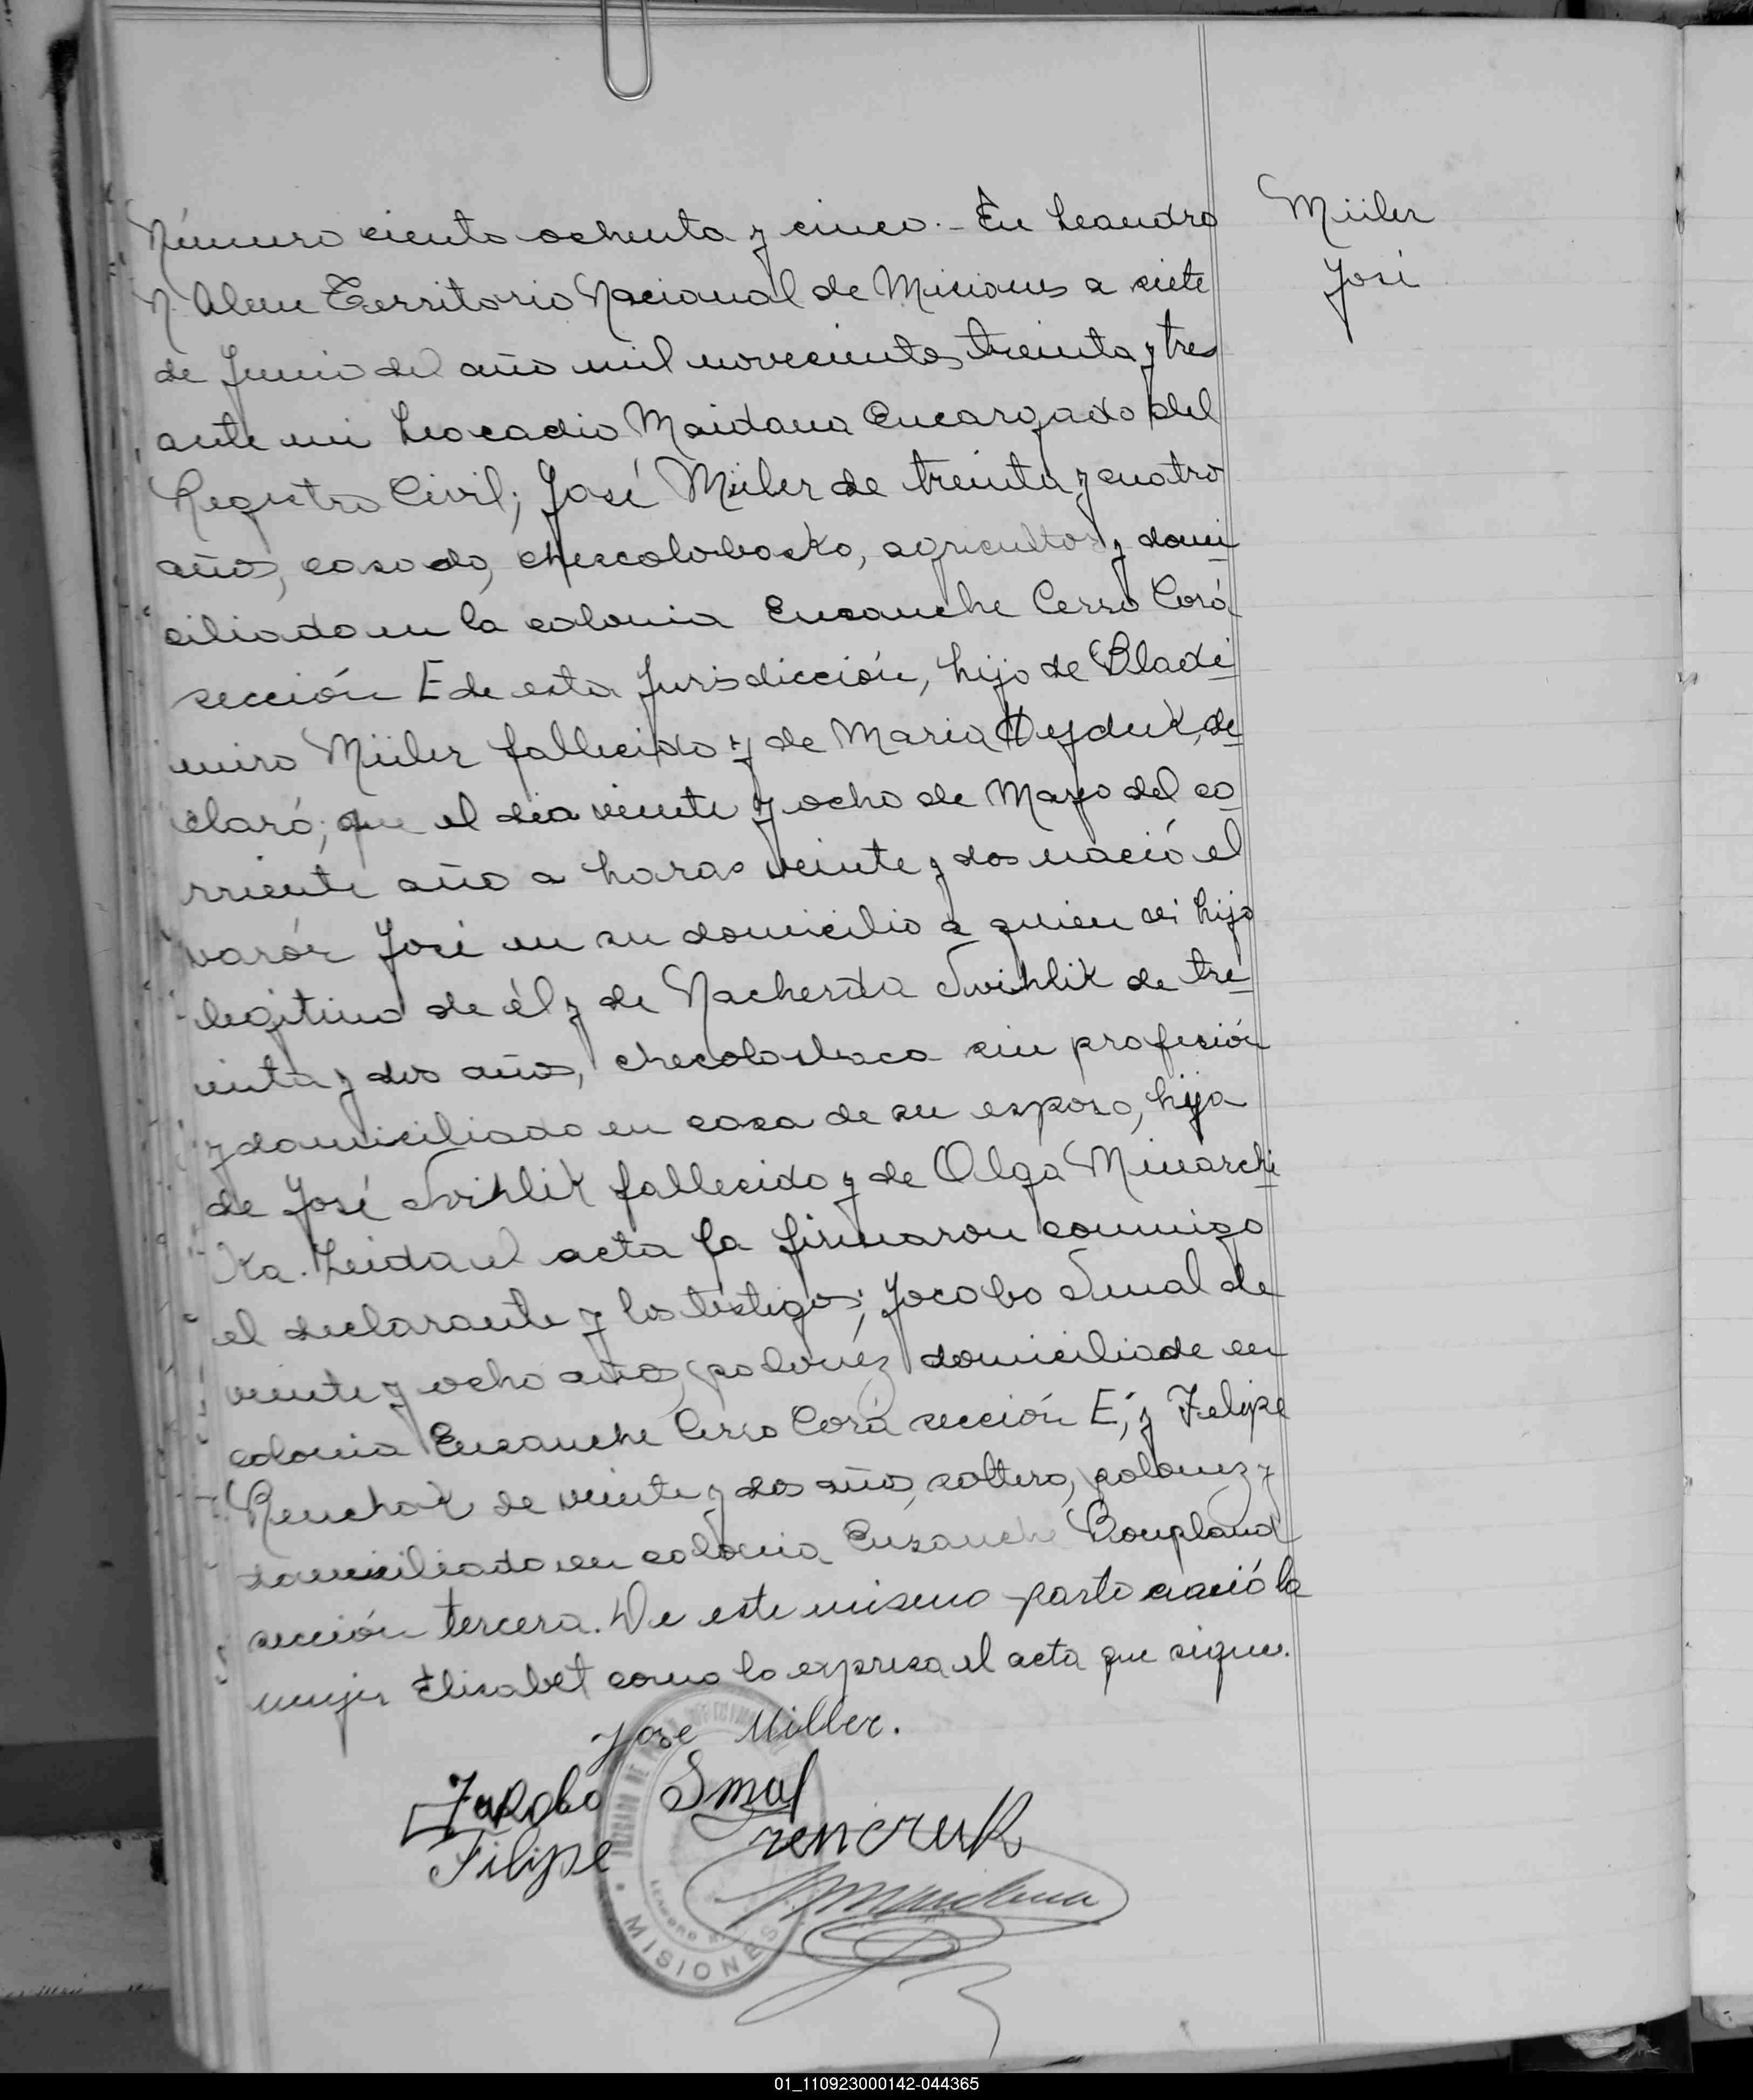 Número ciento ochenta y cinco.- En Leandro
N. Alem Territorio Nacional de Misiones a siete
de Junio del año mil novecientos treinta y tres
ante mi Leocadio Maidana Encargado del
Registro Civil; José Müler de treinta y cuatro
años, casado, checolobosko, agricultor y domi
ciliado en la colonia Ensanche Cerro Corá
sección E de esta Jurisdicción, hijo de Bladi
miro Müler fallecido y de Maria Heyduk, de
claró; que el dia veinte y ocho de Mayo del co
rriente año a horas veinte y dos nació el
varón José en su domicilio a quien vi hijo
legitimo de él y de Nacherda Svihlik de tre
inta y dos años, checolovaca sin profesión
y domiciliado en casa de su esposo, hija
de José Svihlik fallecido y de Olga Minarchi
ka. Leida el acta la firmaron conmigo
el declarante y los testigos; Jocobo Smal de
veinte y ocho años, polonéz domiciliade en
colonia Ensanche Cerro Corá sección E; y Felipe
Renchok de veinte y dos años, soltero, polonez y
domiciliado en colonia Ensanche Bompland
sección tercera. De este mismo parto nació la
mujer Elisabet como lo expresa el acta que sigue.
Jose Miller.
Jakobo Smal
Filipe
MISIONES
Müler
José
01_110923000142-044365